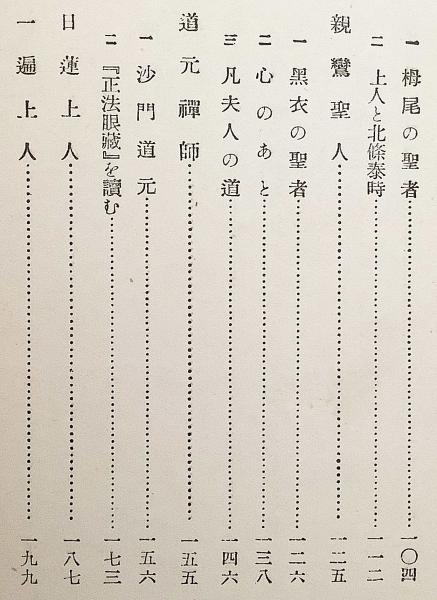 一 栂尾の聖者……………一〇四
二 上人と北條泰時……………一一二
親鸞聖人……………一二五
一 黑衣の聖者……………一二六
二 心のあと……………一三八
三 凡夫人の道……………一四六
道元禪師……………一五五
一 沙門道元……………一五六
二 『正法眼藏』を讀む……………一七三
日蓮上人……………一八七
一遍上人……………一九九